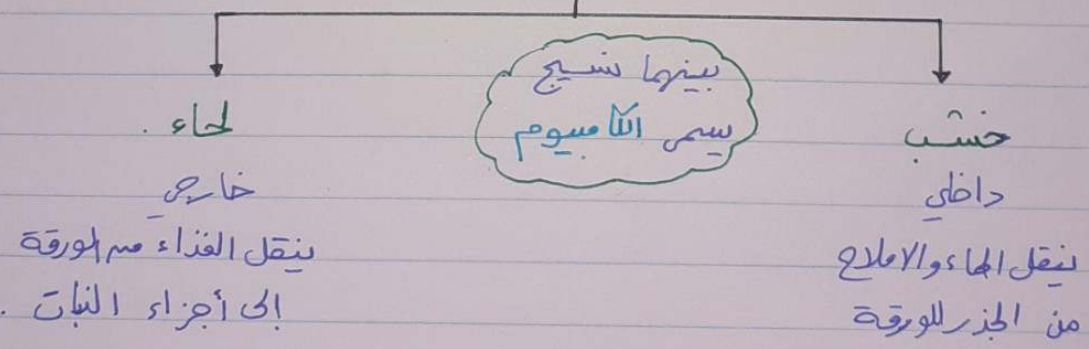 خشب
داخلي
ينقل الماء والاملاح
من الجذر للورقة
بينهما نسيج
يسمى الكامبيوم
لحاء .
خارجي
ينقل الغذاء من الورقة
إلى أجزاء النبات .